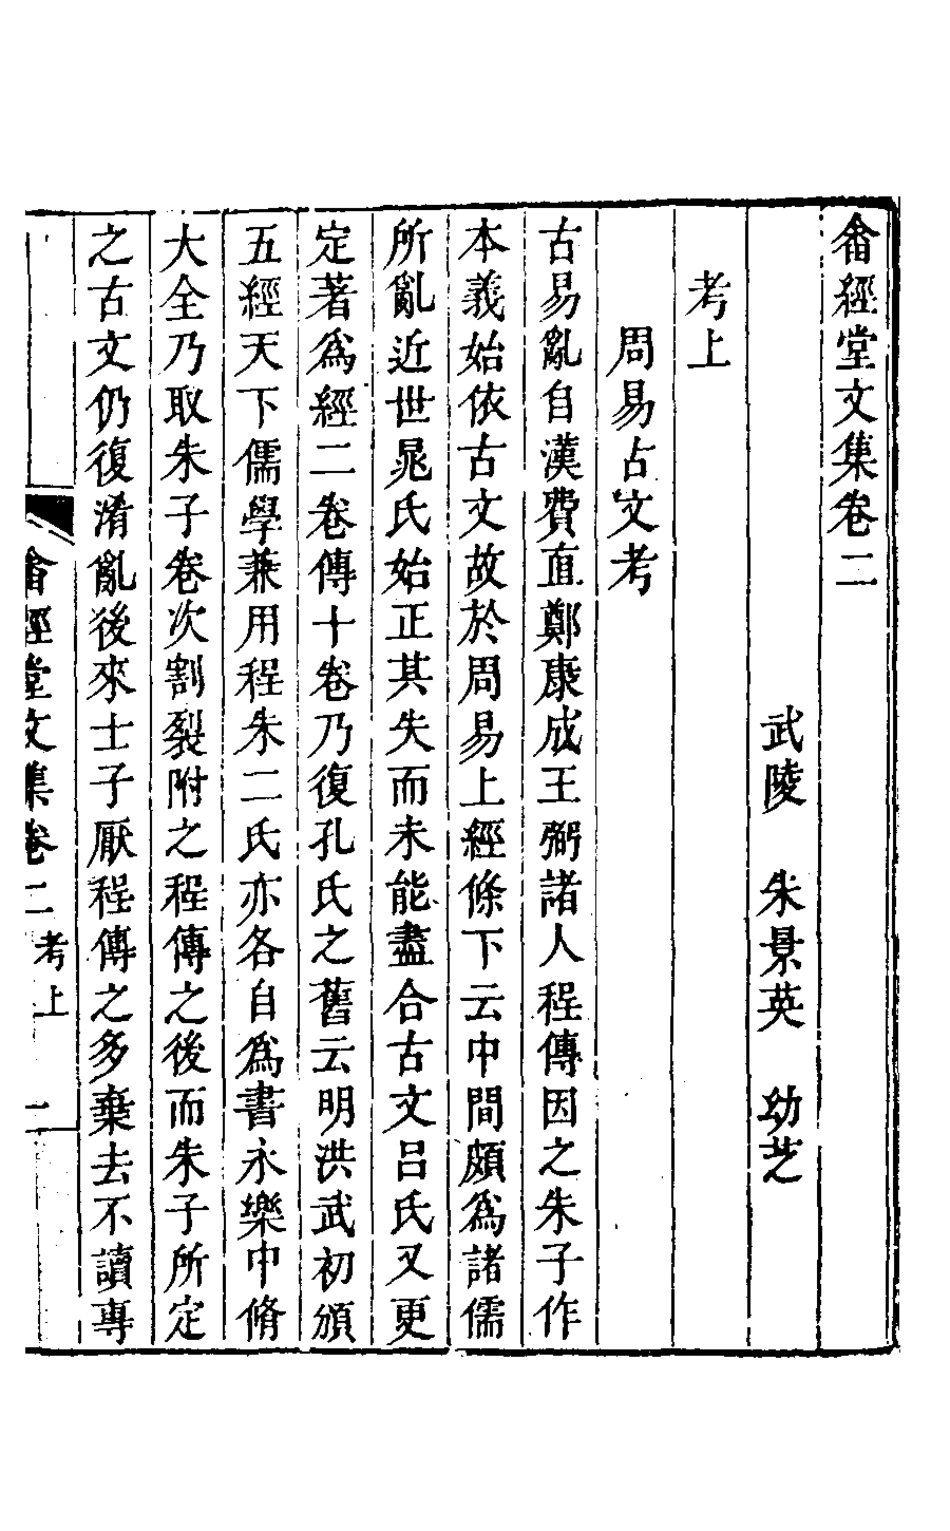 畬經堂文集卷二
武陵　朱景英　幼芝
考上
周易古文考
古易亂自漢費直鄭康成王弼諸人程傳因之朱子作
本義始依古文故於周易上經條下云中間頗爲諸儒
所亂近世晁氏始正其失而未能盡合古文呂氏又更
定著爲經二卷傳十卷乃復孔氏之舊云明洪武初頒
五經天下儒學兼用程朱二氏亦各自爲書永樂中脩
大全乃取朱子卷次割裂附之程傳之後而朱子所定
之古文仍復淆亂後來士子厭程傳之多棄去不讀專
畬經堂文集卷二 考上 一